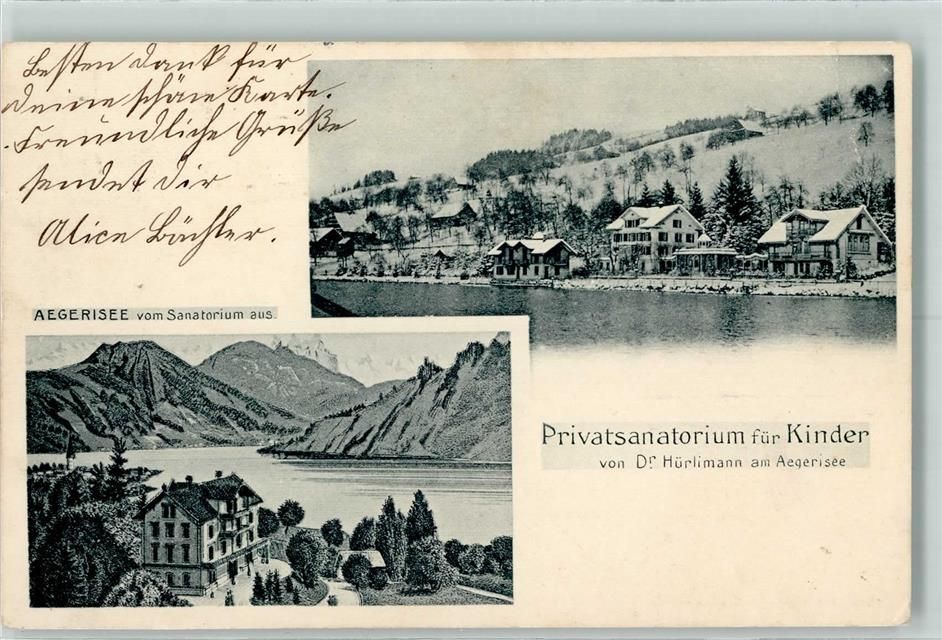 Besten Dank für
deine schöne Karte.
Freundliche Grüße
sendet dir
Alice Bächler.
AEGERISEE vom Sanatorium aus.
Privatsanatorium für Kinder
von Dr Hürlimann am Aegerisee